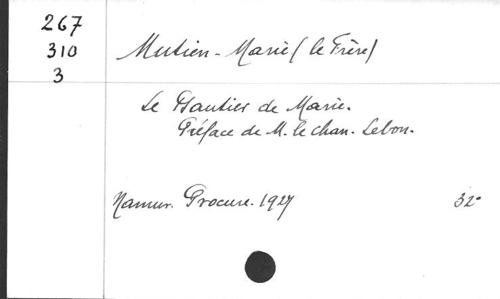 267
310
3
Mutien-Marie (le Frère)
Le Psautier de Marie.
Préface de M. le chan. Lebon.
Namur. Procure. 1927 32°